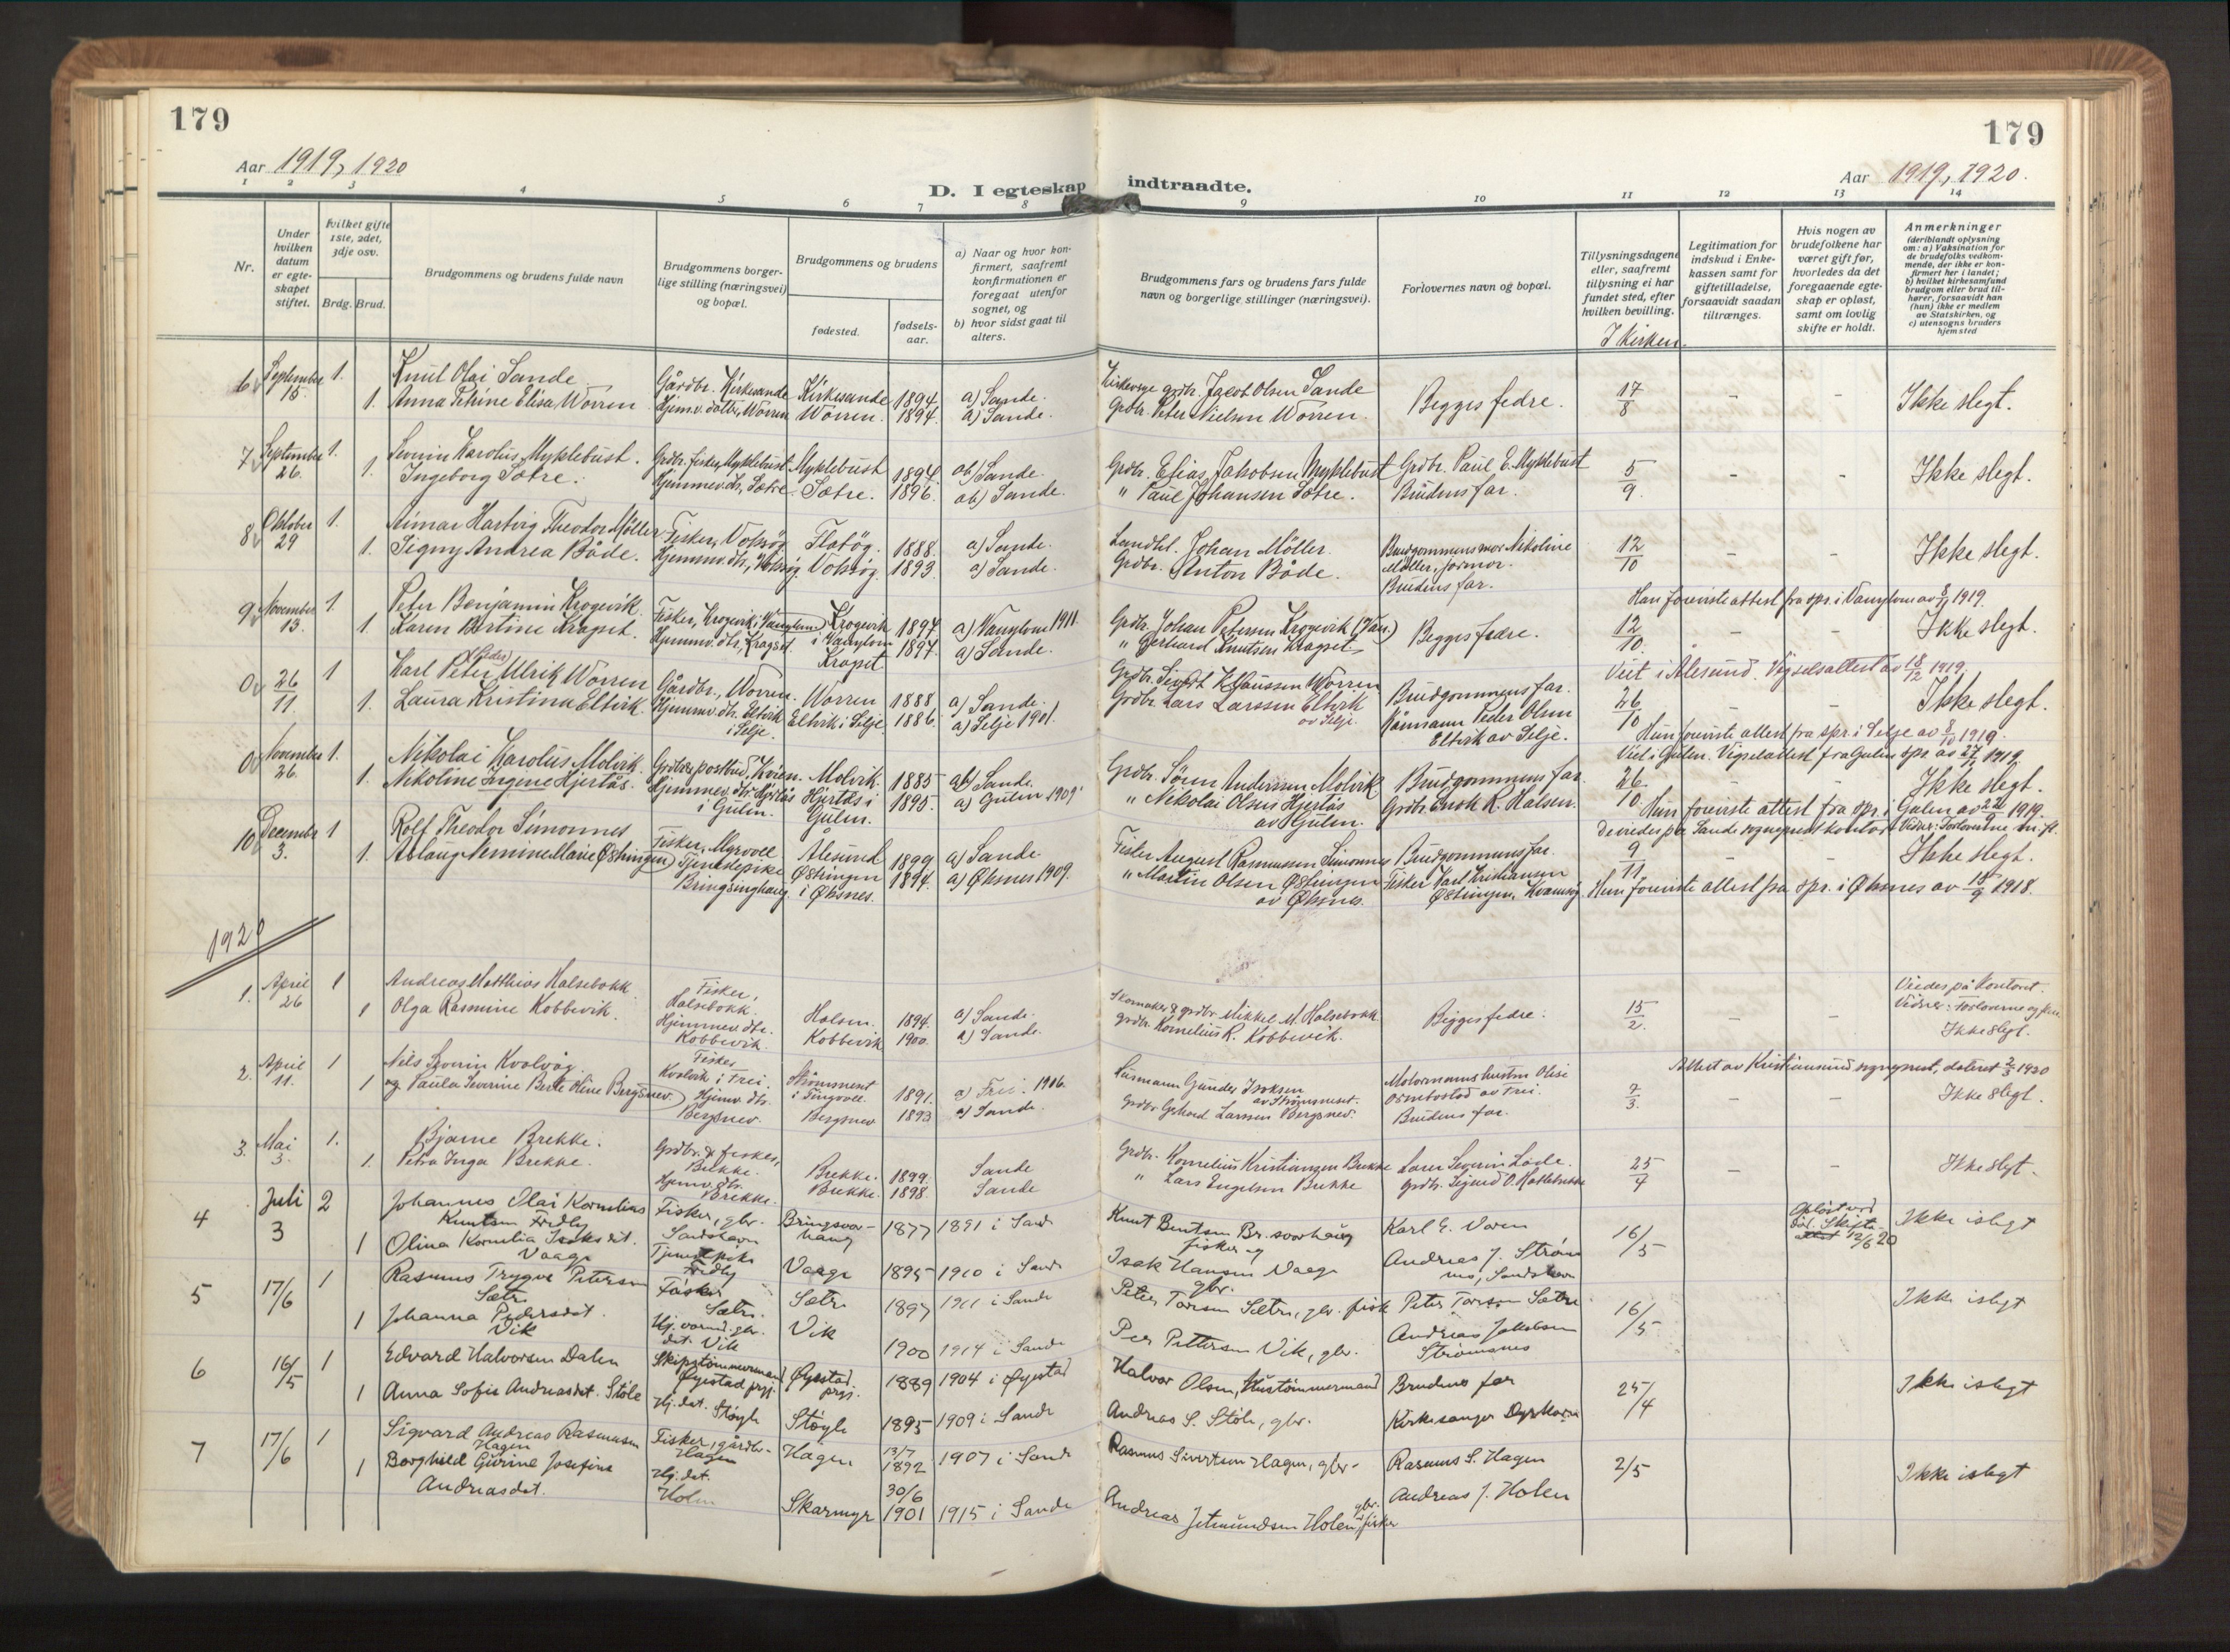 179
179
Aar 1919, 1920
Aar 1919, 1920.
D. I egteskap indtraadte.
1 2 3 4 5 6 7 8 9 10 11 12 13 14
Nr.
Under hvilken datum er egte-skapet stiftet.
hvilket gifte 1ste, 2det, 3dje osv.
Brdg. Brud.
Brudgommens og brudens fulde navn
Brudgommens borger-lige stilling (næringsvei) og bopæl.
Brudgommens og brudens
fødested.
fødsels-aar.
a) Naar og hvor kon-firmert, saafremt konfirmationen er foregaat utenfor sognet, og
b) hvor sidst gaat til alters.
Brudgommens fars og brudens fars fulde navn og borgerlige stillinger (næringsvei).
Forlovernes navn og bopæl.
Tillysningsdagene eller, saafremt tillysning ei har fundet sted, efter hvilken bevilling.
Legitimation for indskud i Enke-kassen samt for giftetilladelse, forsaavidt saadan tiltrænges.
Hvis nogen av brudefolkene har været gift før, hvorledes da det foregaaende egte-skap er opløst, samt om lovlig skifte er holdt.
Anmerkninger
(deriblandt oplysning om: a) Vaksination for de brudefolks vedkom-mende, der ikke er kon-firmert her i landet; b) hvilket kirkesamfund brudgom eller brud til-hører, forsaavidt han (hun) ikke er medlem av Statskirken, og c) utensogns bruders hjemsted
I kirken.
6 September 18. 1. Knut Olai Sande Gårdbr. Kirkesande Kirkesande 1894 a) Sande. Kirkeverge grdbr. Jacob Olsen Sande Begges fedre. 17/8 - - Ikke slegt.
1. Anna Petrine Elisa Worren Hjemv. datter, Worren Worren. 1894. a) Sande. Grdbr. Peter Nielsen Worren.
7 September 26. 1. Severin Karolus Myklebust. Grdbr. fisker, Myklebust Myklebust 1894. ab) Sande. Grdbr. Elias Jakobsen Myklebust Grdbr. Paul E. Myklebust 5/9. - - Ikke slegt.
1. Ingeborg Sætre. Hjemmev. dtr, Sætre. Sætre. 1896. ab) Sande. " Paul Johansen Sætre. Brudens far.
8 Oktober 29 1. Hartvig Theodor Møller Fisker, Voksøy Flatøy. 1888. a) Sande. Landhl. Johan Møller. Brudgommens mor Nikoline Møller, formor. 12/10 - - Ikke slegt.
1. Signy Andrea Både. Hjemmv. dtr, Voksøy. Voksøy. 1893. a) Sande. Grdbr. Anton Både. Brudens far.
9 November 13. 1. Peter Benjamin Krogevik. Fisker, Krogevik i Vannylven Krogevik i Vannylven 1894 a) Vannylven 1911. Grdbr. Johan Petersen Krogevik (Van.) Begges fedre. 12/10. - -
Han foreviste attest fra spr. i Vannylven av 8/11 1919. Ikke slegt.
1. Karen Bertine Kragset. Hjemmv. dtr, Kragset. Kragset 1897. a) Sande. " Gerhard Knutsen Kragset
0 26/11. 1 Karl Peter (Peder) Ulrik Worren Gårdbr., Worren. Worren 1888. a) Sande. Grdbr. Sivert Klaussen Worren Brudgommens far. 26/10 - -
Viet i Ålesund. Vigselsattest av 18/12 1919. Ikke slegt.
1. Laura Kristina Eltvik. Hjemmv. dtr. Eltvik i Selje. Eltvik i Selje. 1886. a) Selje 1901. Grdbr. Lars Larssen Eltvik av Selje. Peder Olsen Eltvik av Selje.
Hun foreviste attest fra spr. i Selje av 8/10 1919.
0 November 26. 1. Nikolai Karolus Molvik. Molvik. 1885 ab) Sande. Grdbr. Søren Anderssen Molvik. Brudgommens far. 26/10
Viet i Gulen. Vigselattest fra Gulen spr. av 27/12 1919. Ikke slegt.
1. Nikoline Ingine Hjertås. Hjemmev. dtr Hjertås i Gulen. Hjertås i Gulen. 1895. a) Gulen 1909. " Nikolai Olsen Hjertås av Gulen. Grdbr. Enok R. Halsen.
Hun foreviste attest fra spr. i Gulen av 22/9 1919.
10 December 3. 1 Rolf Theodor Simonnes Fisker, Myrvoll Ålesund 1899 a) Sande Fisker August Rasmussen Simonnes Brudgommens far. 9/11 - -
De viedes på Sande sogneprestkontor. Vidner: Forloverne m. fl. Ikke slegt.
1. Aslaug Nemine Marie Østringen Tjenestepike Bringsinghaug. Østringen i Øksnes. 1894. a) Øksnes 1909. " Martin Olsen Østringen av Øksnes. Fisker Karl Kristiansen Østringen, Kvamsøy.
Hun foreviste attest fra spr. i Øksnes av 18/9 1918.
1920
1. April 26 1 Andreas Matthias Halsebakk. Fisker, Halsebakk. Halsen. 1894. a) Sande. Skomaker & grdbr. Mikkel M. Halsebakk. Begges fedre. 15/2. - - Viedes på kontoret. Vidner: Forloverne og Ikke slegt.
1 Olga Rasmine Kobbevik. Hjemmev. dtr. Kobbevik. Kobbevik 1900. a) Sande. Grdbr. Kornelius R. Kobbevik.
2. April 11. 1 Nils Severin Kvalvåg. Fisker, Kvalvik i Frei. Strømsnest i Tingvoll. 1891. a) Frei. 1906. Gunder Isaksen av Strømsnest. Olise Ormbostad av Frei. 7/3. - -
Attest av Kristiansund sogneprest, dateret 2/3 1920 Ikke slegt.
1 og Paula Severine Berte Oline Bergsnev. Hjemv. dtr. Bergsnev. Bergsnev 1893 a) Sande. Grdbr. Gerhard Larssen Bergsnev. Brudens far.
3. Mai 3. 1. Bjarne Brekke. Grdbr. & fisker, Brekke. Brekke. 1899. Sande Grdbr. Kornelius Kristiansen Brekke Severin Løde. 25/4 - - Ikke slegt.
1. Petra Inga Brekke. Hjemv. dtr. Brekke. Brekke. 1898. Sande " Lars Engelsen Brekke Grdbr. Sigurd O. Hakkebakke
4 Juli 3 2 Johannes Olai Kornelius Knutsen Fredly Fisker, gbr. Sandshavn Bringsvor-haug 1877 1891 i Sande Knut Bentsen Br.svorhaug fisker og gbr. Karl E. Voren 16/5 Opløst ved død. Skifte-attest 12/6 20 Ikke i slegt
1 Olina Kornelia Isaksdt. Vaage Tjenestpike Fredly Vaage 1895 1910 i Sande Isak Hansen Vaage Andreas J. Strømnes, Sandshavn
5 17/6 1 Rasmus Trygve Petersen Sætre Fisker Sætre. Sætre 1897 1911 i Sande Peter Torsen Sætre, gbr. fisk Peter Torsen Sætre 16/5 Ikke i slegt
1 Johanna Pedersdat. Vik Hj.værend. gbr. dat. Vik Vik 1900 1914 i Sande Peer Pettersen Vik, gbr. Andreas Jakobsen Strømsnes
6 16/5 1 Edvard Halvorsen Dalen Skipstømmermand Øyestad prgj. Øyestad prgj. 1889 1904 i Øyestad Halvor Olsen, Hustømmermand Brudens far 25/4 Ikke i slegt
1 Anna Sofie Andreasdat. Støle Hj. dat. Støyle Støyle 1895 1909 i Sande Andreas S. Støle, gbr. Kirkesanger Dyrkorn
7 17/6 1 Sigvard Andreas Rasmusen Hagen Fisker, gårdbr. Hagen Hagen 13/7 1892 1907 i Sande Rasmus Sivertsen Hagen, gbr. Rasmus S. Hagen 2/5 Ikke i slegt
1 Borghild Gurine Josefine Andreasdat. Hj. dat. Holen Skarmyr 30/6 1901 1915 i Sande Andreas Jetmundsen Holen, gbr. fisker Andreas J. Holen